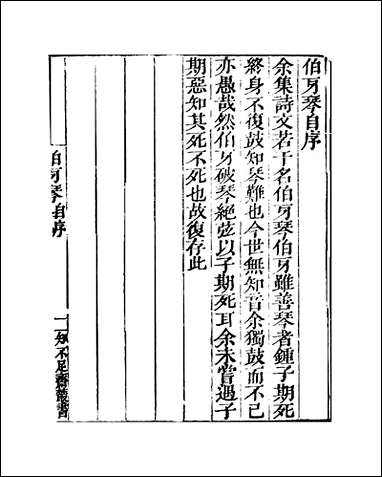 伯牙琴自序
余集詩文若干名伯牙琴伯牙雖善琴者鍾子期死
終身不復鼓知琴難也今世無知音余獨鼓而不已
亦愚哉然伯牙破琴絕弦以子期死耳余未嘗遇子
期惡知其死不死也故復存此
伯牙琴自序
一
知不足齋叢書